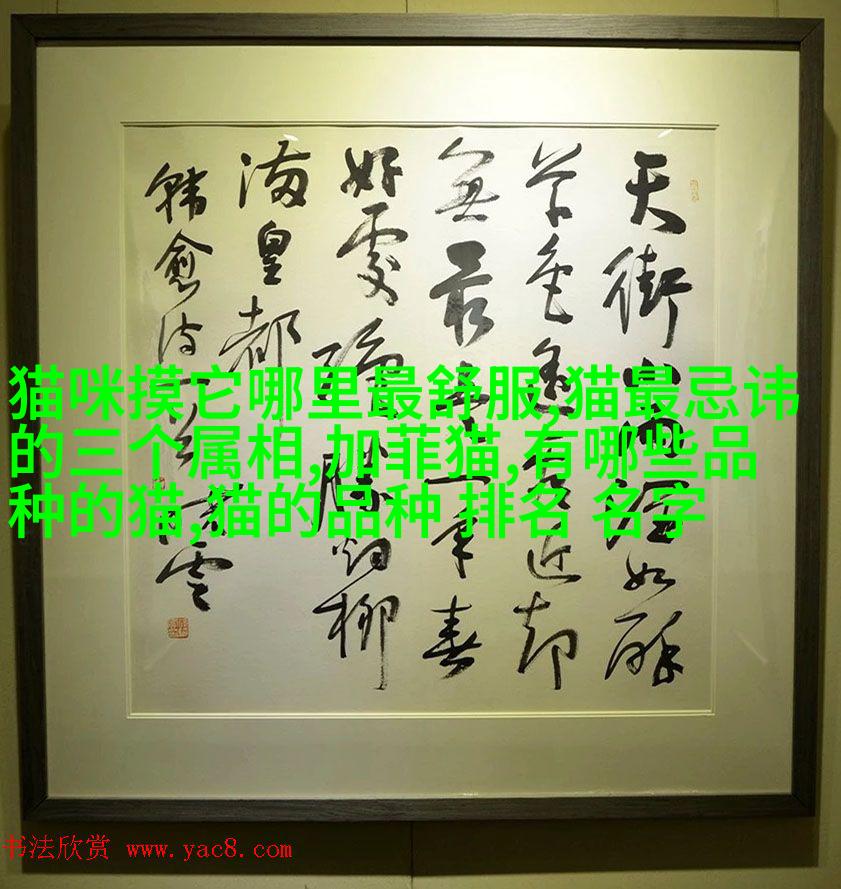 天街小雨潤如酥
草色遙看近却
無最是一年春
好處絕勝烟柳
滿皇都
韓愈詩一首 雲
猫咪摸它哪里最舒服,猫最忌讳
的三个属相,加菲猫,有哪些品
种的猫,猫的品种 排名 名字
书法欣赏 www.yac8.com